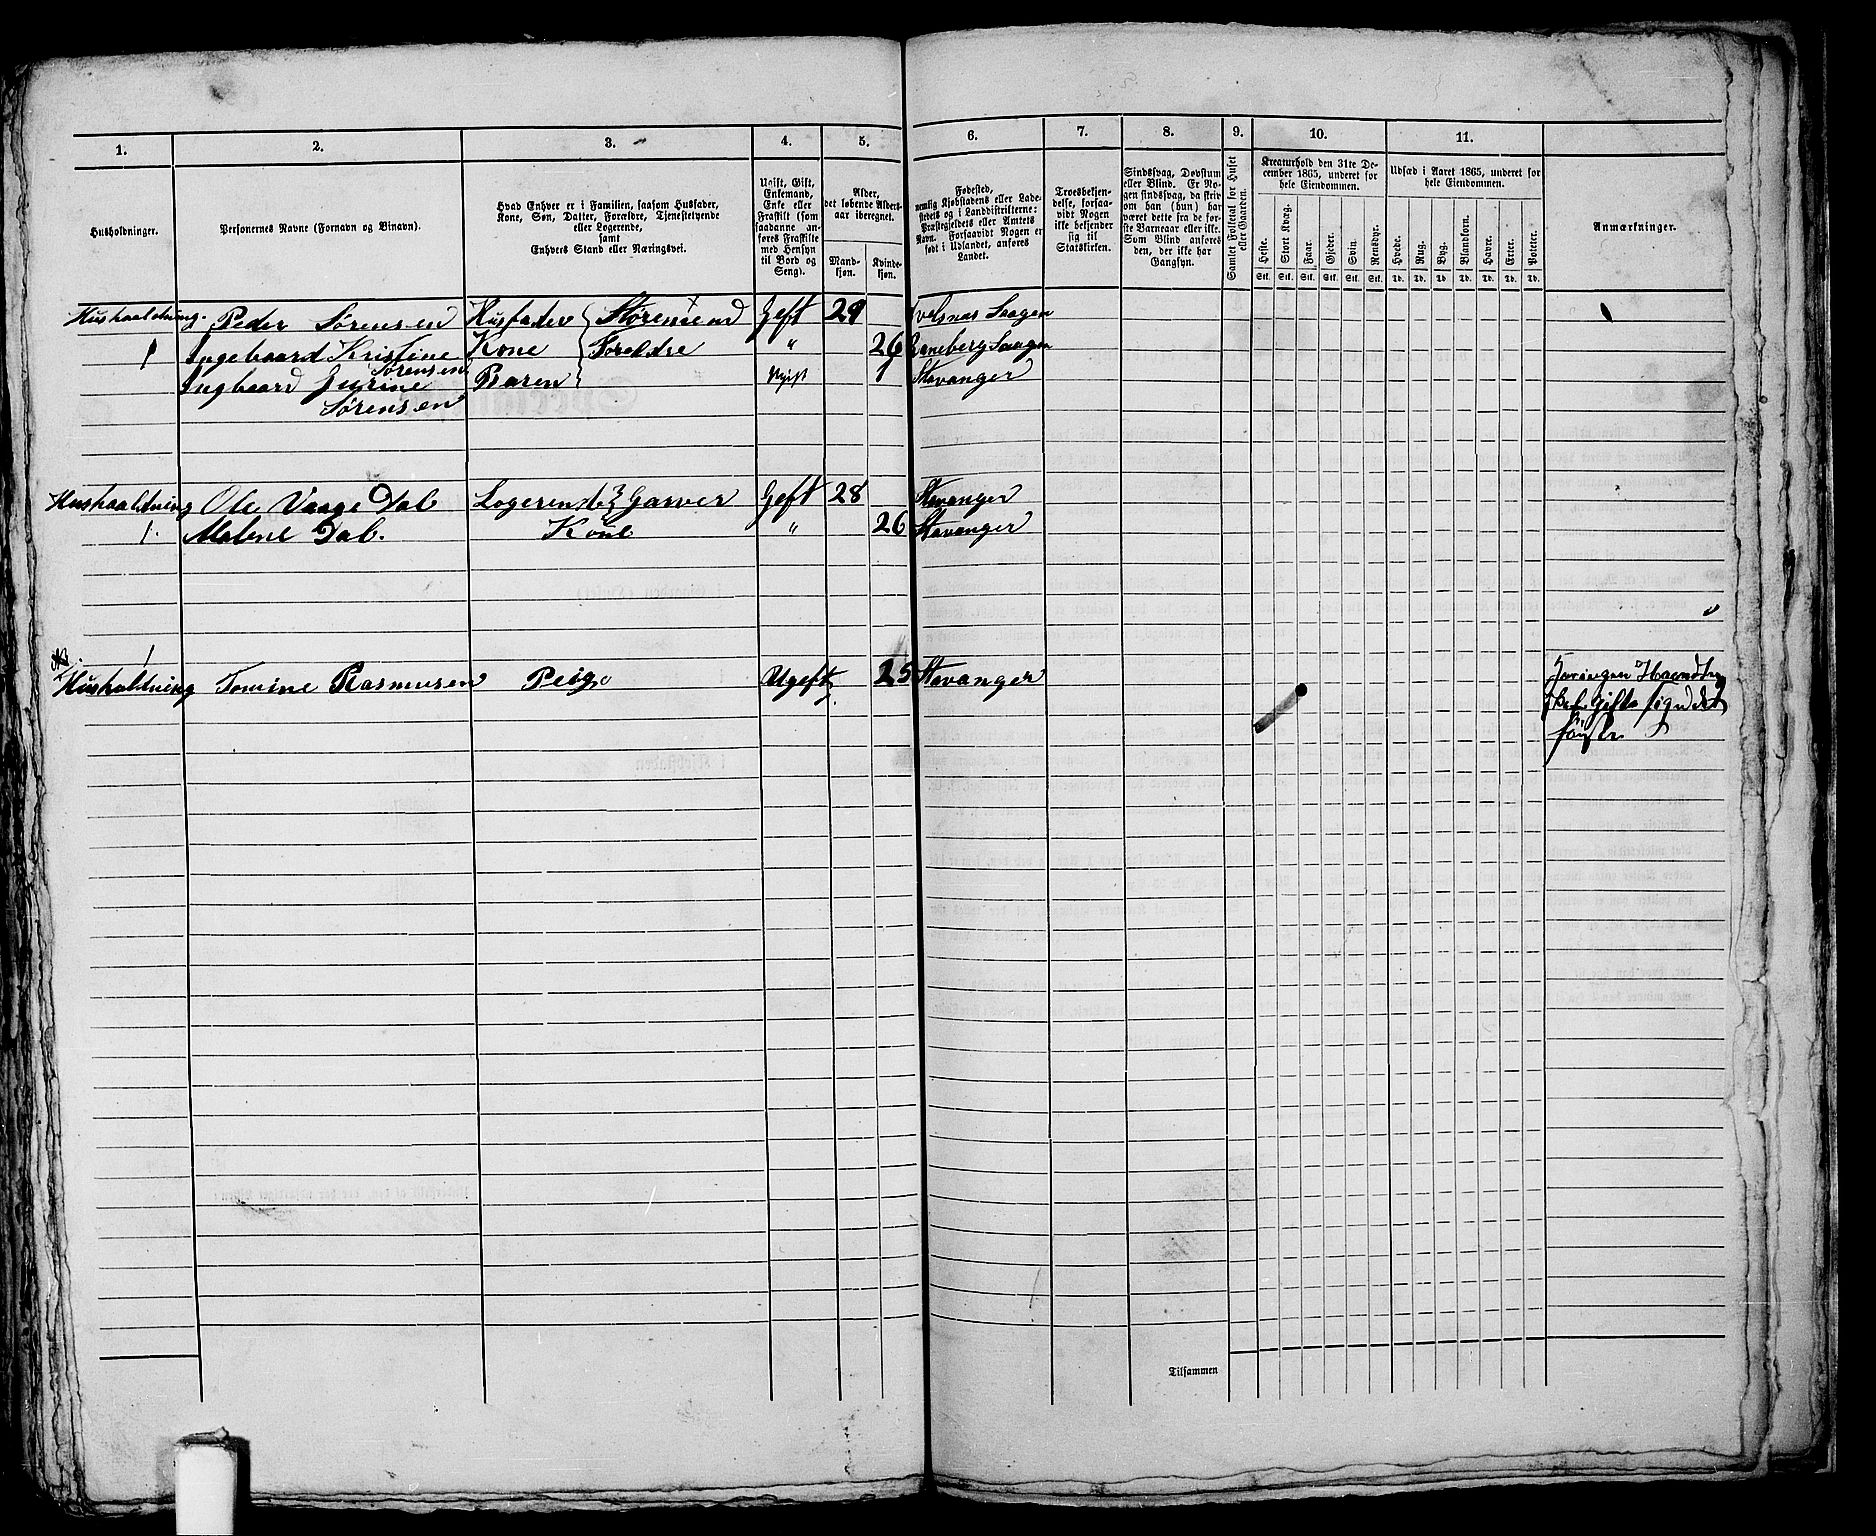 1. 2. 3. 4. 5. 6. 7. 8. 9. 10. 11.
Husholdninger.
Personernes Navne (Fornavn og Tilnavn).
Hvad Enhver er i Familien, saasom Husfader,
Kone, Søn, Datter, Forældre, Tjenestetyende
eller Logerende,
samt
Enhvers Stand eller Næringsvei.
Ugift, Gift,
Enkemand,
Enke eller
Fraskilt (som
saadanne an-
føres Fraskilte
med Hensyn
til Bord og
Seng).
Alder,
det løbende Alders-
aar iberegnet.
Mand-
kjøn.
Kvinde-
kjøn.
Fødested,
nemlig Kjøbstadens eller Lade-
stedets og i Landdistrikterne:
Præstegjeldets eller Amtets
Navn. Forsaavidt Nogen er
født i Udlandet, anføres
Landet.
Troesbekjen-
delse, forsaa-
vidt Nogen
ikke bekjender
sig til
Statskirken.
Sindssvag, Døvstum
eller Blind. Er No-
gen sindssvag, da skriv
om han (hun) har
været dette fra de før-
ste Barneaar eller ikke.
Som Blind anføres
den, der ikke har
Gangsyn.
Samlet Folketal for Huset
eller Gaarden.
Kreaturhold den 31te De-
cember 1865, underet for
hele Eiendommen.
Heste. Stort Kvæg. Faar. Gjeder. Svin. Rensdyr.
Stk. Stk. Stk. Stk. Stk. Stk.
Udsæd i Aaret 1865, underet for
hele Eiendommen.
Hvede. Rug. Byg. Blandkorn. Havre. Erter. Poteter.
Td. Td. Td. Td. Td. Td. Td.
Anmærkninger.
Hushaaldning. Peder Sørensen Husfader Geft 29
1 Ingeboard Kristine Kone Foreldre " 26
Sørensen
Ingboard Baren Ugift 1 Stavanger
Sørensen
Hushaaldning Ole Vaage Dal Logerende Garver Geft 28 Stavanger
1. Malene Dal. Kone " 26 Stavanger
1
Hushaldning Tomine Rasmusen Peige Ugeft 25 Stavanger
Tilsammen